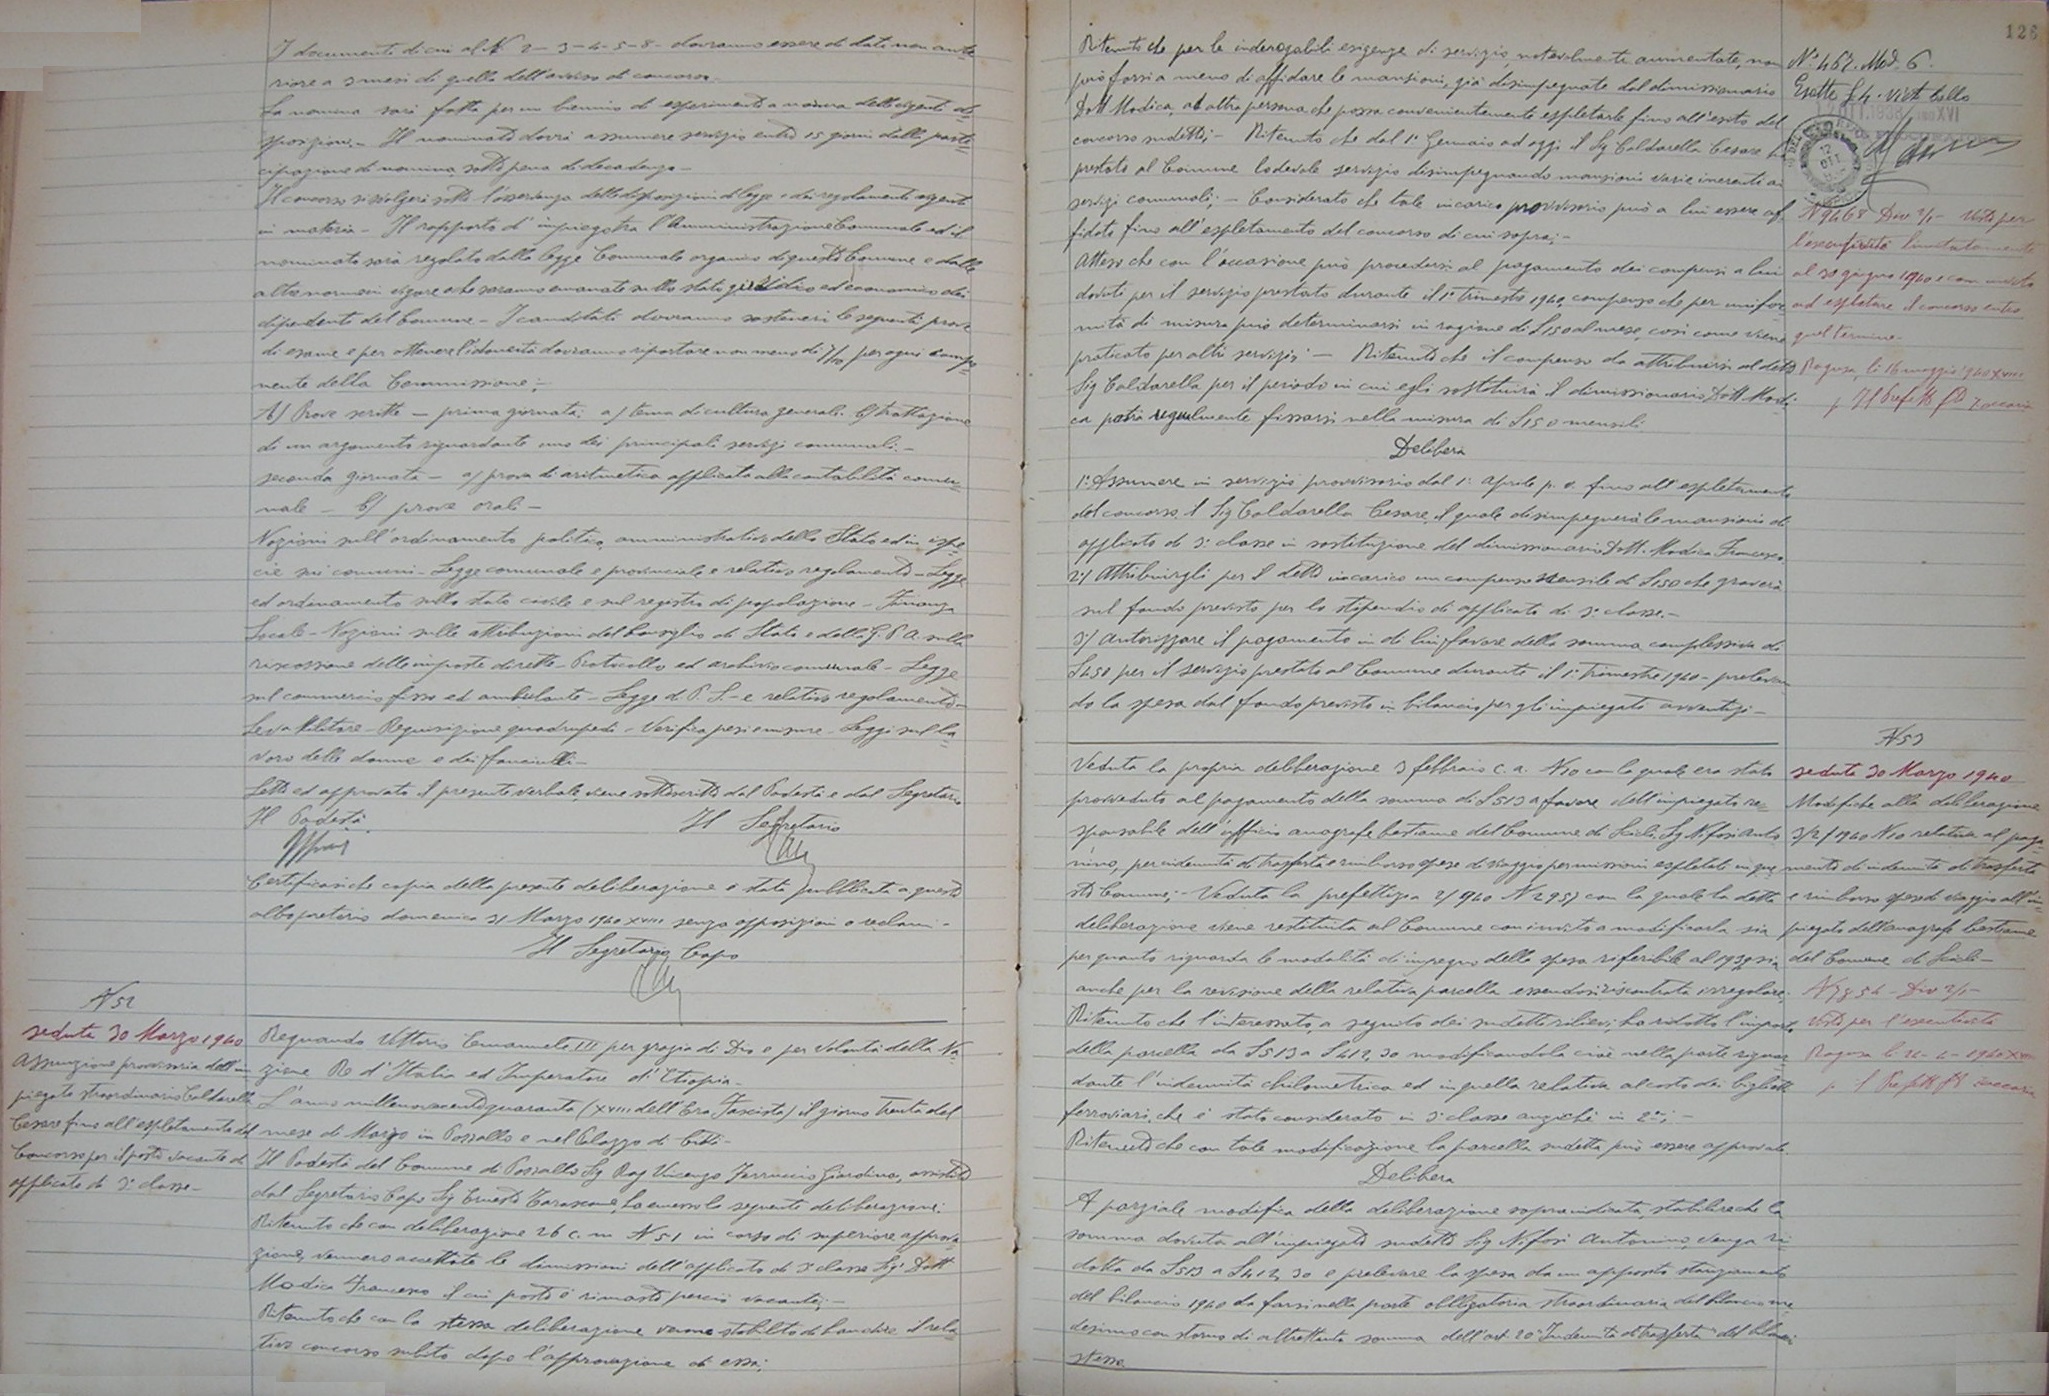 I documenti di cui al N. 2-3-4-5-8- dovranno essere di data non ante=
riore a 3 mesi di quella dell'avviso di concorso.-
La nomina sarà fatta per un biennio di esperimento a norma delle vigenti di=
sposizioni.- Il nominato dovrà assumere servizio entro 15 giorni dalla parte=
cipazione di nomina sotto pena di decadenza.-
Il concorso si svolgerà sotto l'osservanza delle disposizioni di legge e dei regolamenti vigenti
in materia.- Il rapporto d'impiego tra l'Amministrazione Comunale ed il
nominato sarà regolato dalla legge Comunale organico di questo Comune e dalle
altre norme in vigore che saranno emanate sullo stato giuridico ed economico dei
dipendenti del Comune.- I candidati dovranno sostenere le seguenti prove
di esame e per ottenere l'idoneità dovranno riportare non meno di 7/10 per ogni compo=
nente della Commissione:-
A) Prove scritte - prima giornata: a) tema di cultura generale. b) trattazione
di un argomento riguardante uno dei principali servizi comunali.-
seconda giornata - a) prova di aritmetica applicata alla contabilità comu=
nale - b) prove orali-
Nozioni sull'ordinamento politico, amministrativo dello Stato ed in ispe=
cie sui comuni - Legge comunale e provinciale e relativo regolamento - Legge
ed ordinamento sullo stato civile e sul registro di popolazione - Finanza
Locale - Nozioni sulle attribuzioni del Consiglio di Stato e della G.P.A. sulla
riscossione delle imposte dirette - Protocollo ed archivio comunale - Legge
sul commercio fisso ed ambulante - Legge di P.S. e relativo regolamento -
Leva Militare - Requisizione quadrupedi - Verifica pesi e misure - Leggi sul la=
voro delle donne e dei fanciulli -
Letto ed approvato il presente verbale, viene sottoscritto dal Podestà e dal Segretario
Il Podestà Il Segretario
Certificasi che copia della presente deliberazione è stata pubblicata a questo
albo pretorio domenica 31 Marzo 1940 XVIII senza opposizioni o reclami.-
Il Segretario Capo
N 52
seduta 30 Marzo 1940
Assunzione provvisoria dell'im
piegato straordinario Caldarella
Cesare fino all'espletamento del
Concorso per il posto vacante di
applicato di 3ª classe-
Regnando Vittorio Emanuele III per grazia di Dio e per volontà della Na
zione Re d'Italia ed Imperatore d'Etiopia-
L'anno millenovecentoquaranta (XVIII dell'Era Fascista) il giorno trenta del
mese di Marzo in Pozzallo e nel Palazzo di Città-
Il Podestà del Comune di Pozzallo Sig Rag Vincenzo Ferruccio Giardina, assistito
dal Segretario Capo Sig Ernesto Tarascone, ha emesso la seguente deliberazione:
Ritenuto che con deliberazione 26 c.m N 51 in corso di superiore approva
zione, vennero accettate le dimissioni dell'applicato di 3ª classe Sig. Dott
Modica Francesco il cui posto è rimasto perciò vacante;-
Ritenuto che con la stessa deliberazione venne stabilito di bandire il rela
tivo concorso subito dopo l'approvazione di essa;
126
Ritenuto che per le inderogabili esigenze di servizio, notevolmente aumentate, non
può farsi a meno di affidare le mansioni, già disimpegnate dal dimissionario
Dott Modica, ad altra persona che possa convenientemente espletarle fino all'esito del
concorso sudetto;- Ritenuto che dal 1° Gennaio ad oggi il Sig Caldarella Cesare ha
prestato al Comune lodevole servizio disimpegnando mansioni varie inerenti ai
servizi comunali;- Considerato che tale incarico provvisorio può a lui essere af
fidato fino all'espletamento del concorso di cui sopra;-
Atteso che con l'occasione può procedersi al pagamento dei compensi a lui
dovuti per il servizio prestato durante il 1° trimestre 1940, compenso che per unifor
mità di misura può determinarsi in ragione di £150 al mese, così come viene
praticato per altri servizi;- Ritenuto che il compenso da attribuirsi al detto
Sig Caldarella per il periodo in cui egli sostituirà il dimissionario Dott Modi
ca potrà regualmente fissarsi nella misura di £150 mensili.
Delibera
1° Assumere in servizio provvisorio dal 1° Aprile p.v. fino all'espletamento
del concorso il Sig Caldarella Cesare, il quale disimpegnerà le mansioni di
applicato di 3ª classe in sostituzione del dimissionario Dott. Modica Francesco.
2°) Attribuirgli per il detto incarico un compenso mensile di £150 che graverà
sul fondo previsto per lo stipendio di applicato di 3ª classe.-
3°) Autorizzare il pagamento in di lui favore della somma complessiva di
£450 per il servizio prestato al Comune durante il 1° Trimestre 1940 - prelevan
do la spesa dal fondo previsto in bilancio per gli impiegati avventizi-
N° 467. Mod. 6.
Esatte £4. visto bollo
N 9468 Div 2/1- Visto per
l'esecutività limitatamente
al 30 giugno 1940 e con invito
ad espletare il concorso entro
quel termine-
Ragusa, li 16 maggio 1940 XVIII
p Il Prefetto
N 53
seduta 30 Marzo 1940
Modifiche alla deliberazione
3/2/1940 N 10 relativa al paga=
mento di indennità di trasferta
e rimborso spese di viaggio all'im=
piegato dell'anagrafe bestiame
del Comune di Scicli-
Div 2/1-
Visto per l'esecutività
Ragusa li 1940 XVIII
p Il Prefetto
Veduta la propria deliberazione 3 febbraio c.a. N 10 con la quale era stato
provveduto al pagamento della somma di £513 a favore dell'impiegato re=
sponsabile dell'ufficio anagrafe bestiame del Comune di Scicli Sig Nifosì Anto
nino, per indennità di trasferta e rimborso spese di viaggio per missioni espletate in que
sto Comune;- Veduta la prefettizia N 2957 con la quale la detta
deliberazione viene restituita al Comune con invito a modificarla sia
per quanto riguarda le modalità di impegno della spesa riferibile al 1939 sia
anche per la revisione della relativa parcella essendosi riscontrata irregolare;
Ritenuto che l'interessato, a seguito dei sudetti rilievi, ha ridotto l'importo
della parcella da £513 a £412,30 modificandola cioè nella parte riguar
dante l'indennità chilometrica ed in quella relativa al costo dei biglietti
ferroviari, che è stato considerato in 3ª classe anziché in 2ª;-
Ritenuto che con tale modificazione la parcella sudetta può essere approvata
Delibera
A parziale modifica della deliberazione sopraindicata, stabilire che la
somma dovuta all'impiegato sudetto Sig Nifosì Antonino, venga ri
dotta da £513 a £412,30 e prelevare la spesa da un apposito stanziamento
del bilancio 1940 da farsi nella parte obbligatoria straordinaria del bilancio me
desimo con storno di altrettanta somma dell'art 20 "Indennità di trasferta" del bilancio
stesso